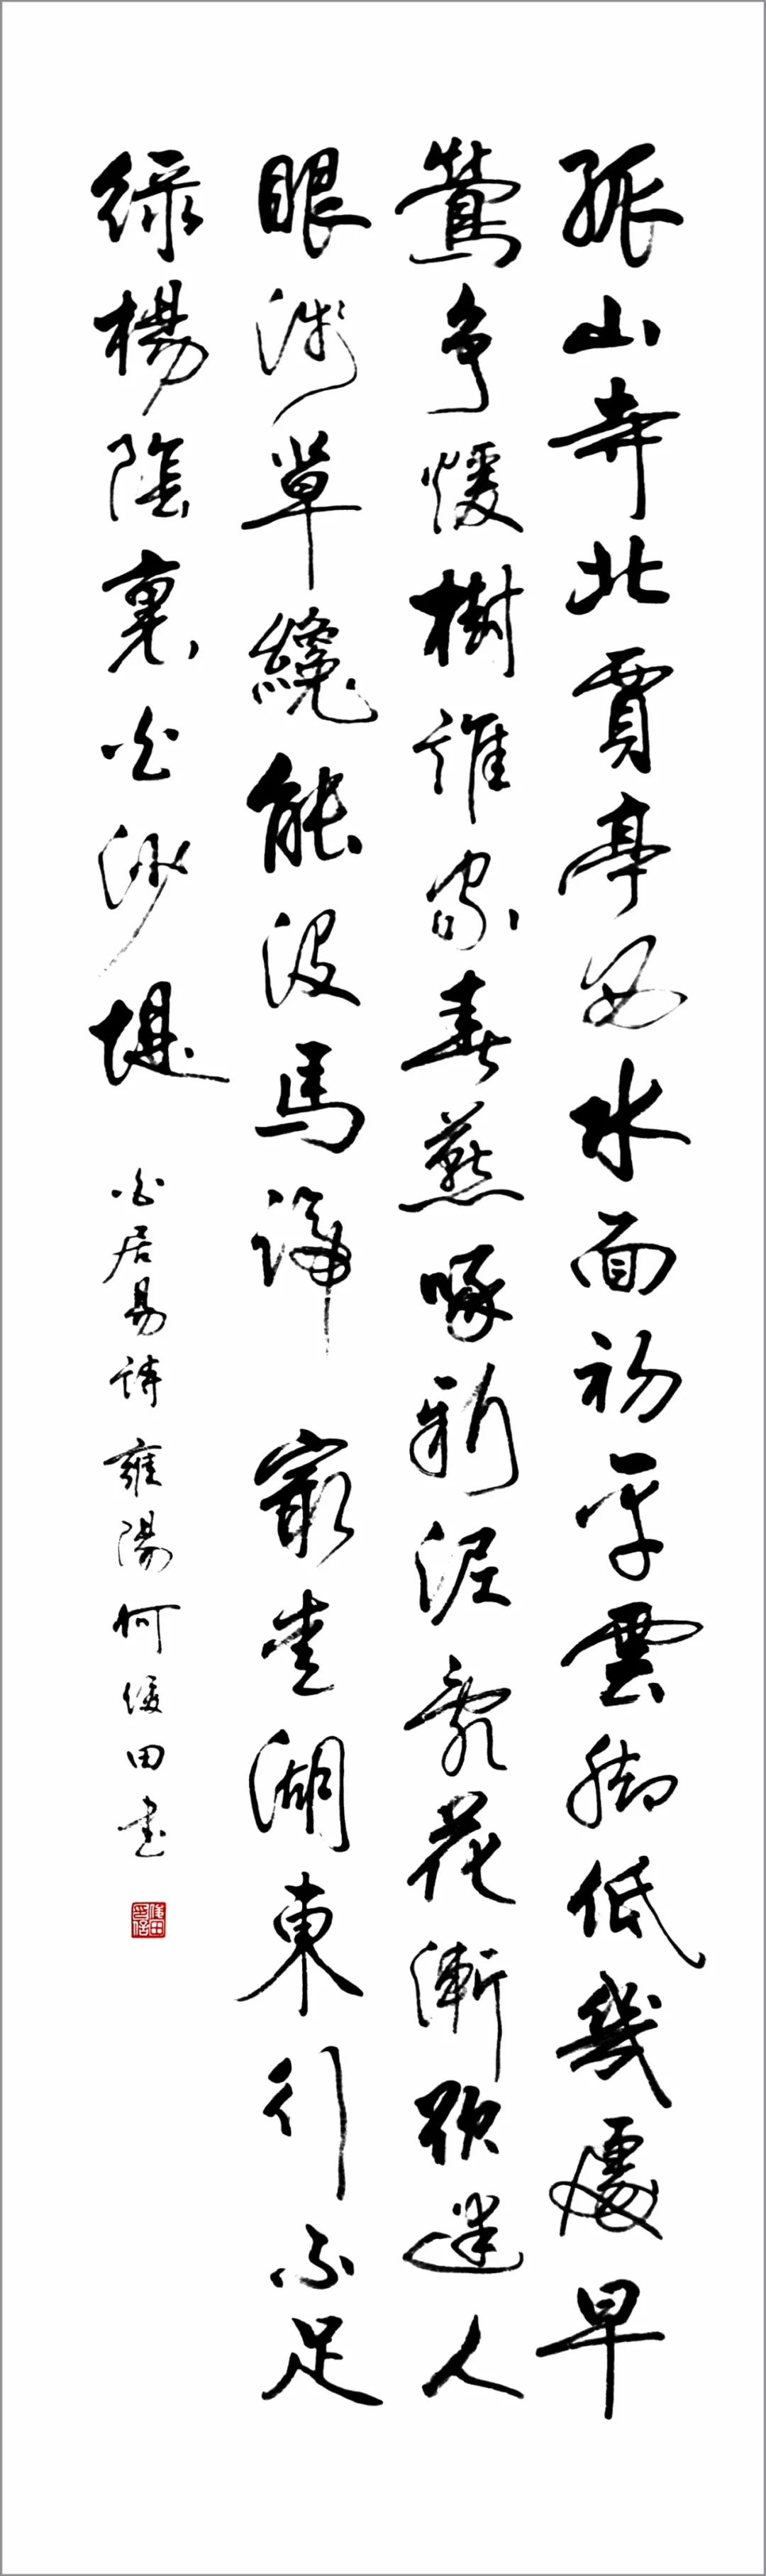 孤山寺北賈亭西水面初平雲脚低幾處早
鶯争煖樹誰家春燕啄新泥亂花漸欲迷人
眼淺草纔能没馬蹄 最愛湖東行不足
緑楊陰裏白沙堤 白居易詩 雍陽何俊田書